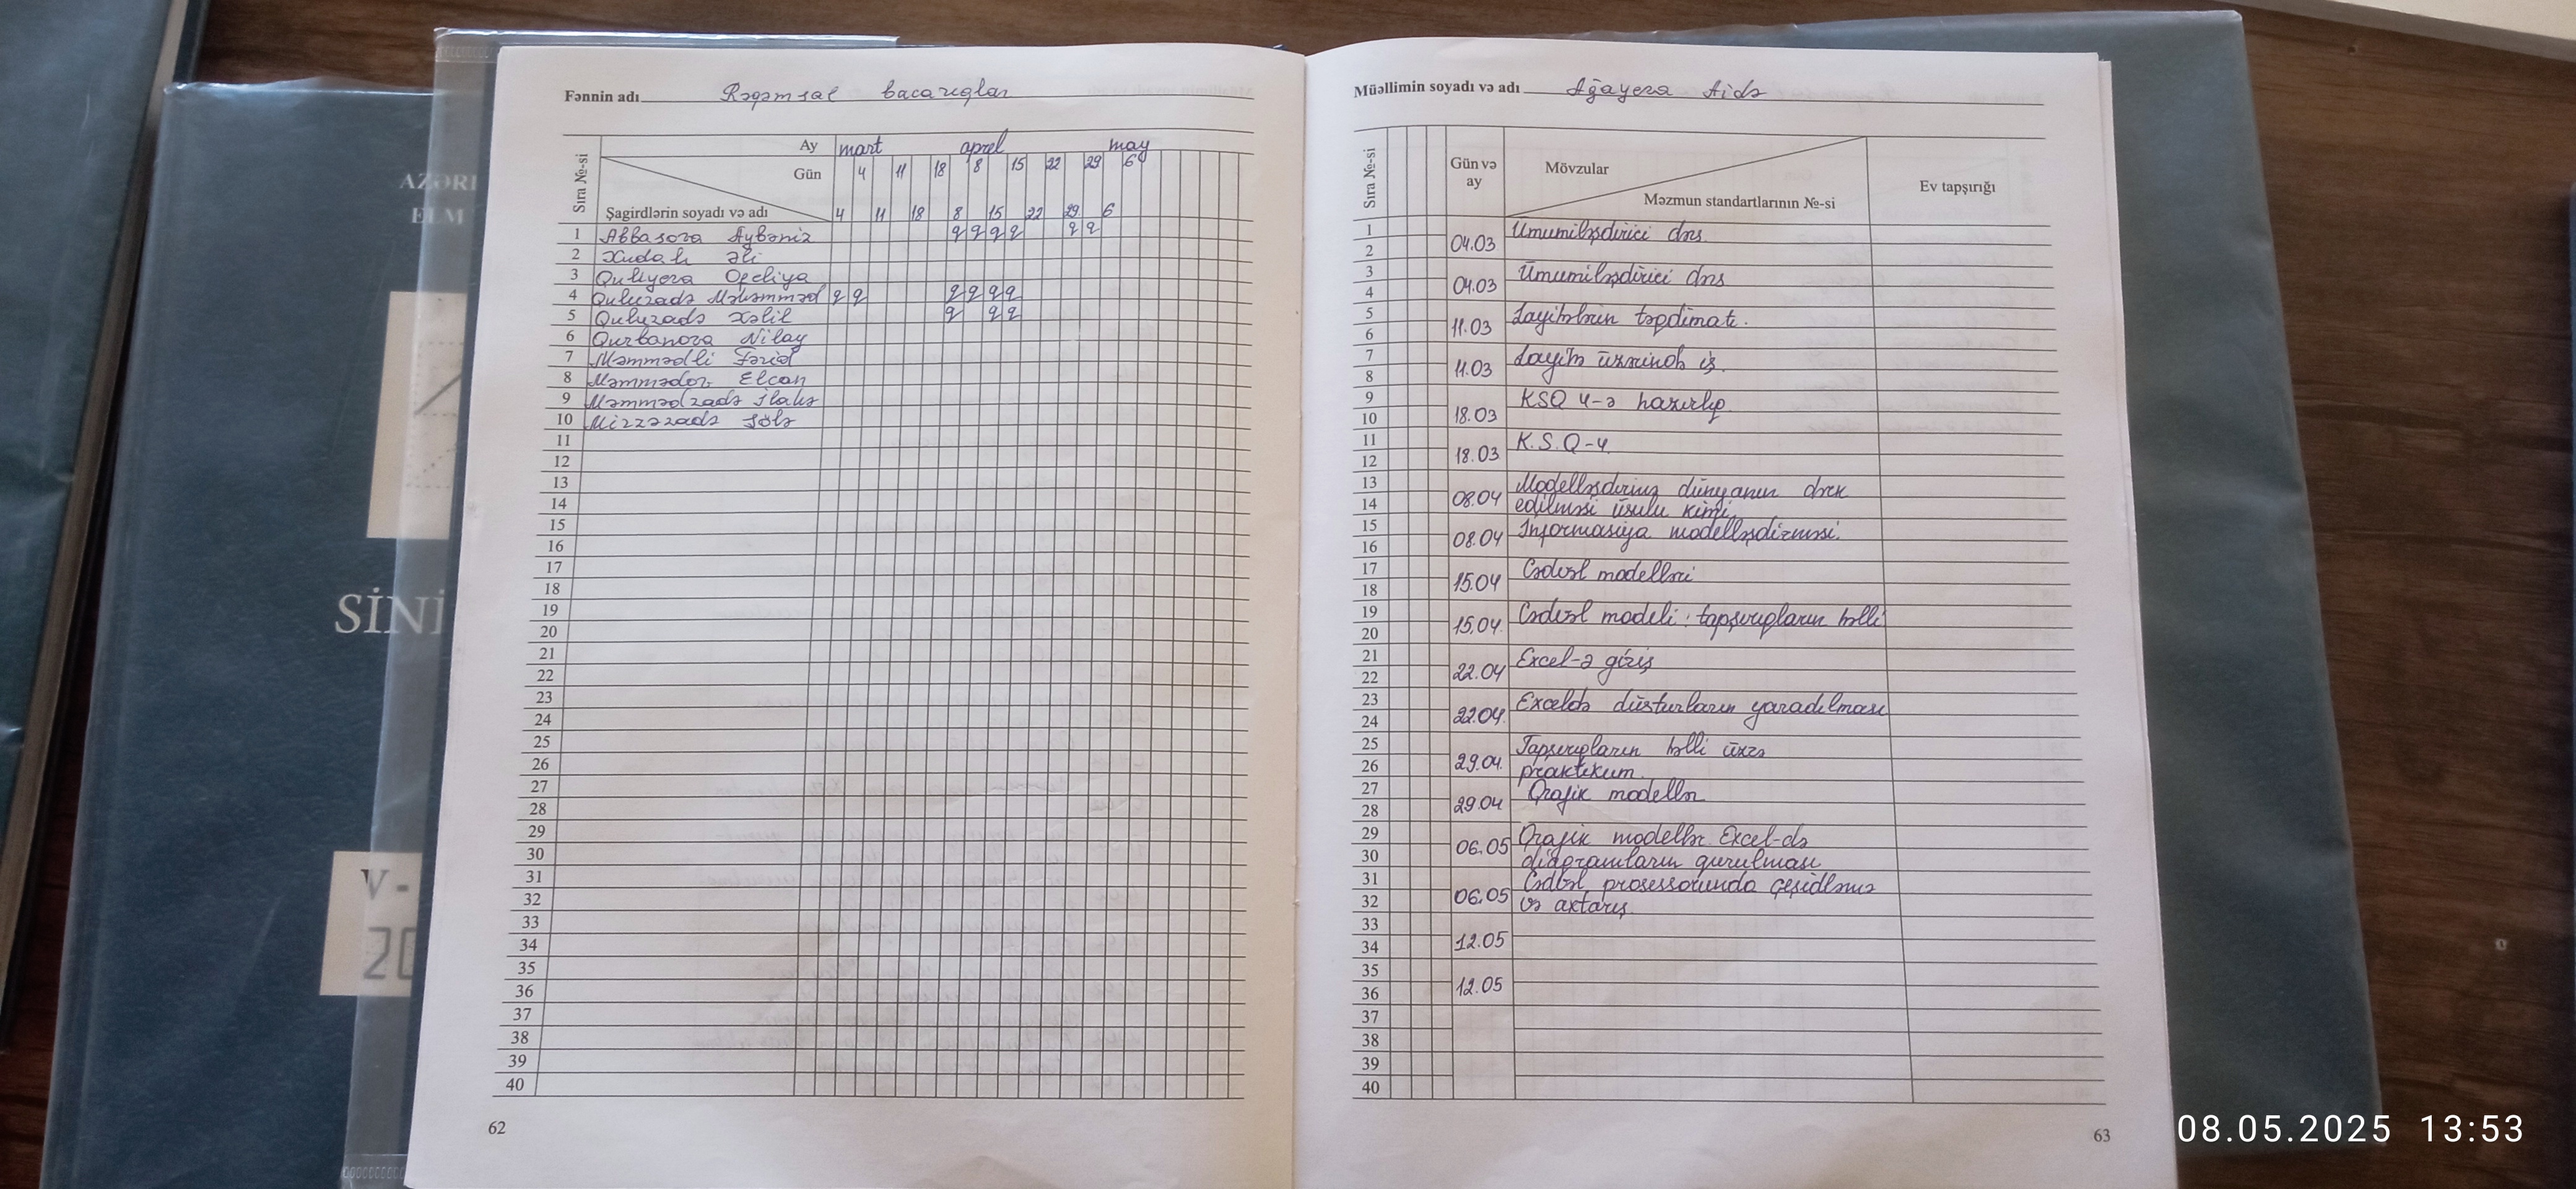 AZƏRI
ELM
SİNİ
V-
20
Fənnin adı Rəqəmsal bacarıqlar
Ay mart aprel may
Gün 4 11 18 8 15 22 29 6
Sıra №-si
Şagirdlərin soyadı və adı 4 11 18 8 15 22 29 6
1 Abbasova Aybəniz q q q q q q
2 Xudalı Əli
3 Quliyeva Ofeliya
4 Quluzadə Məhəmməd q q q q q q
5 Quluzadə Xəlil q q q
6 Qurbanova Nilay
7 Məmmədli Fərid
8 Məmmədov Elcan
9 Məmmədzadə İlahə
10 Mirzəzadə Jölə
11
12
13
14
15
16
17
18
19
20
21
22
23
24
25
26
27
28
29
30
31
32
33
34
35
36
37
38
39
40
62
Müəllimin soyadı və adı Ağayeva Aidə
Sıra №-si
Gün və ay
Mövzular
Məzmun standartlarının №-si
Ev tapşırığı
1
2 04.03 Ümumiləşdirici dərs
3
4 04.03 Ümumiləşdirici dərs
5
6 11.03 Layihələrin təqdimatı.
7
8 11.03 Layihə üzərində iş.
9
10 18.03 KSQ 4-ə hazırlıq
11
12 18.03 K.S.Q-4
13 Modelləşdirmə dünyanın dərk
14 08.04 edilməsi üsulu kimi
15
16 08.04 İnformasiya modelləşdirməsi.
17
18 15.04 Cədvəl modelləri
19
20 15.04 Cədvəl modeli: tapşırıqların həlli
21
22 22.04 Excel-ə giriş
23
24 22.04 Exceldə düsturların yaradılması
25 Tapşırıqların həlli üzrə
26 29.04 praktikum
27
28 29.04 Qrafik modellər
29 Qrafik modellər Excel-də
30 06.05 diaqramların qurulması
31 Cədvəl prosessorunda çeşidləmə
32 06.05 və axtarış
33
34 12.05
35
36 12.05
37
38
39
40
63
08.05.2025 13:53